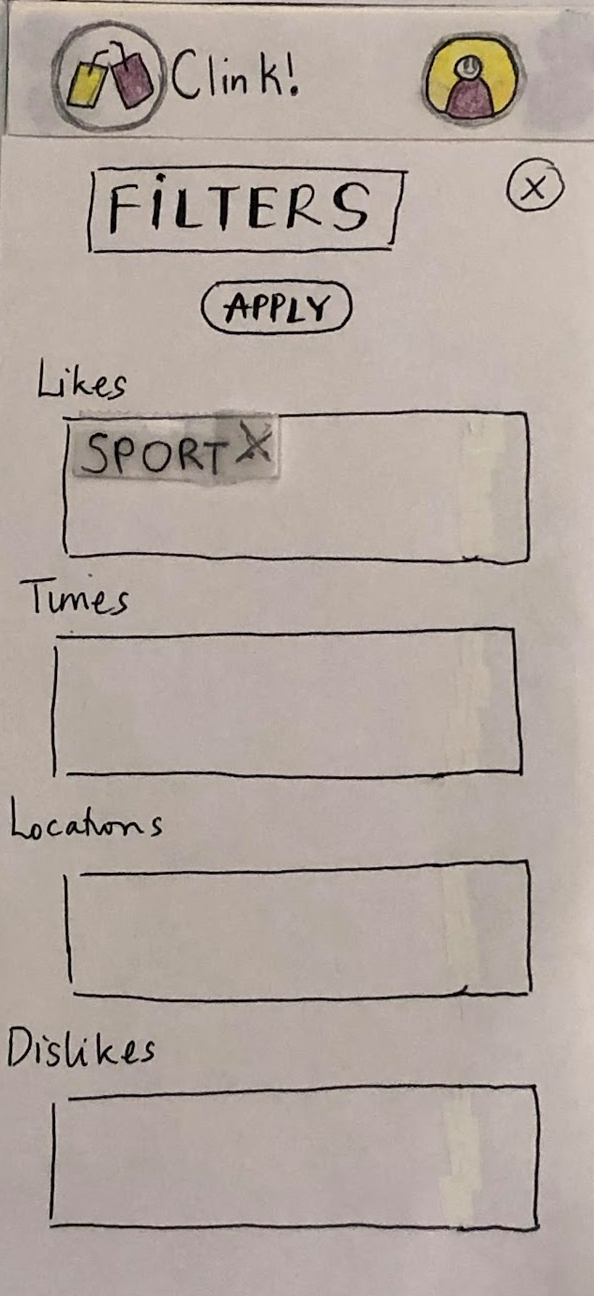 Clink!
FILTERS
X
APPLY
Likes
SPORT X
Times
Locations
Dislikes